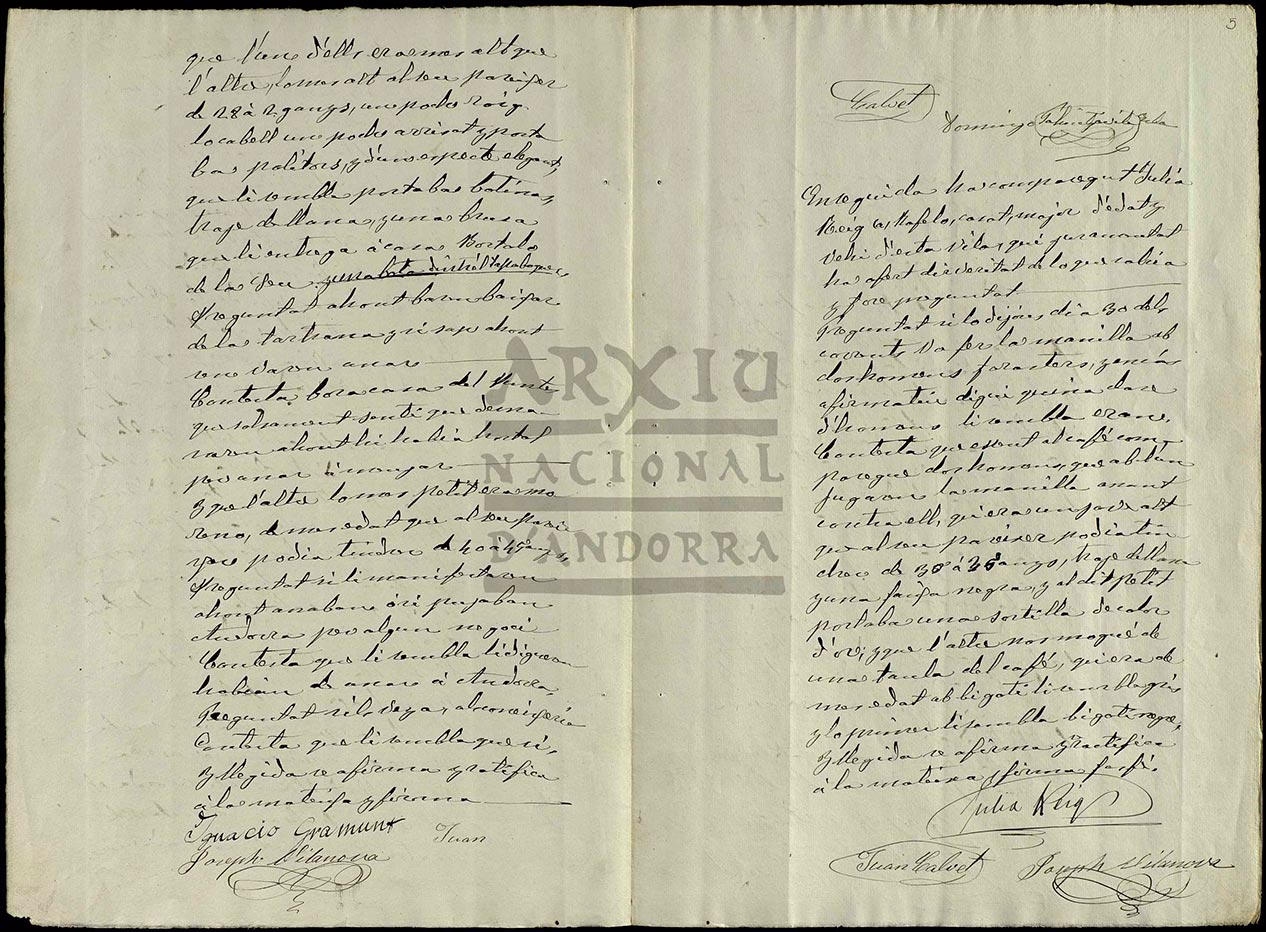 que l'un d'ells era mes alt que
l'altre, lo mes alt al seu pareixer
de 28 à 2 ganys, un poch roig
lo cabell un poch arrisat y porta
ba politors, y d'un aspecte elegant,
que li sembla portaba botinas,
traje de llana, y una brusa
que li entregá à casa Bortalo
de la Seu
Preguntat ahont baren baixar
de la tartrana y si sap ahont
se varen anar
Contesta bora casa del
que solsament sentí que dema-
naren ahont hi habia hostal
per anar à menjar
y que l'altre lo mes petit era mo
reno, de mes edat que al seu parei
xer podia tindrer de 40 à 45 anys,
Preguntat si li manifestaren
ahont anaban ó si pujaban
Andorra per algun negoci
Contesta que li sembla li digueren
habian de anar à Andorra,
Preguntat si ls veya, als coneixeria
Contesta que li sembla que si,
Y llegida se afirma y ratifica
à la mateixa y firma
Ignacio Gramunt
Juan
Joseph Vilanova
5
Calvet
Domingo
En seguida ha comparegut Julià
Reig casat, major d'edat y
vehi d'esta vila, qui juramentat
ha ofert dir veritat de lo que sabia
y fore preguntat
Preguntat si lo dijous dia 30 dels
corrents va fer la manilla ab
dos homens forasters, y en cas
afirmatiu digui quina clase
d'homens li sembla eran,
Contesta que essent al café com-
paregué dos homens, que ab l'un
jugaren la manilla anant
contra ell, qui era un jove alt
que al seu pareixer podia tin
drer de 30 à 35 anys, traje de llana
y una faixa negra, y al dit petit
portaba una sortilla de color
d'or, y que l'altre nos mogué de
una taula del café, qui era de
mes edat ab bigoti li sembla gris
y lo primer li sembla bigoti negre,
Y llegida se afirma y ractifica
à la mateixa y firma
Julia Reig
Juan Calvet
Joseph Vilanova
ARXIU
NACIONAL
D'ANDORRA